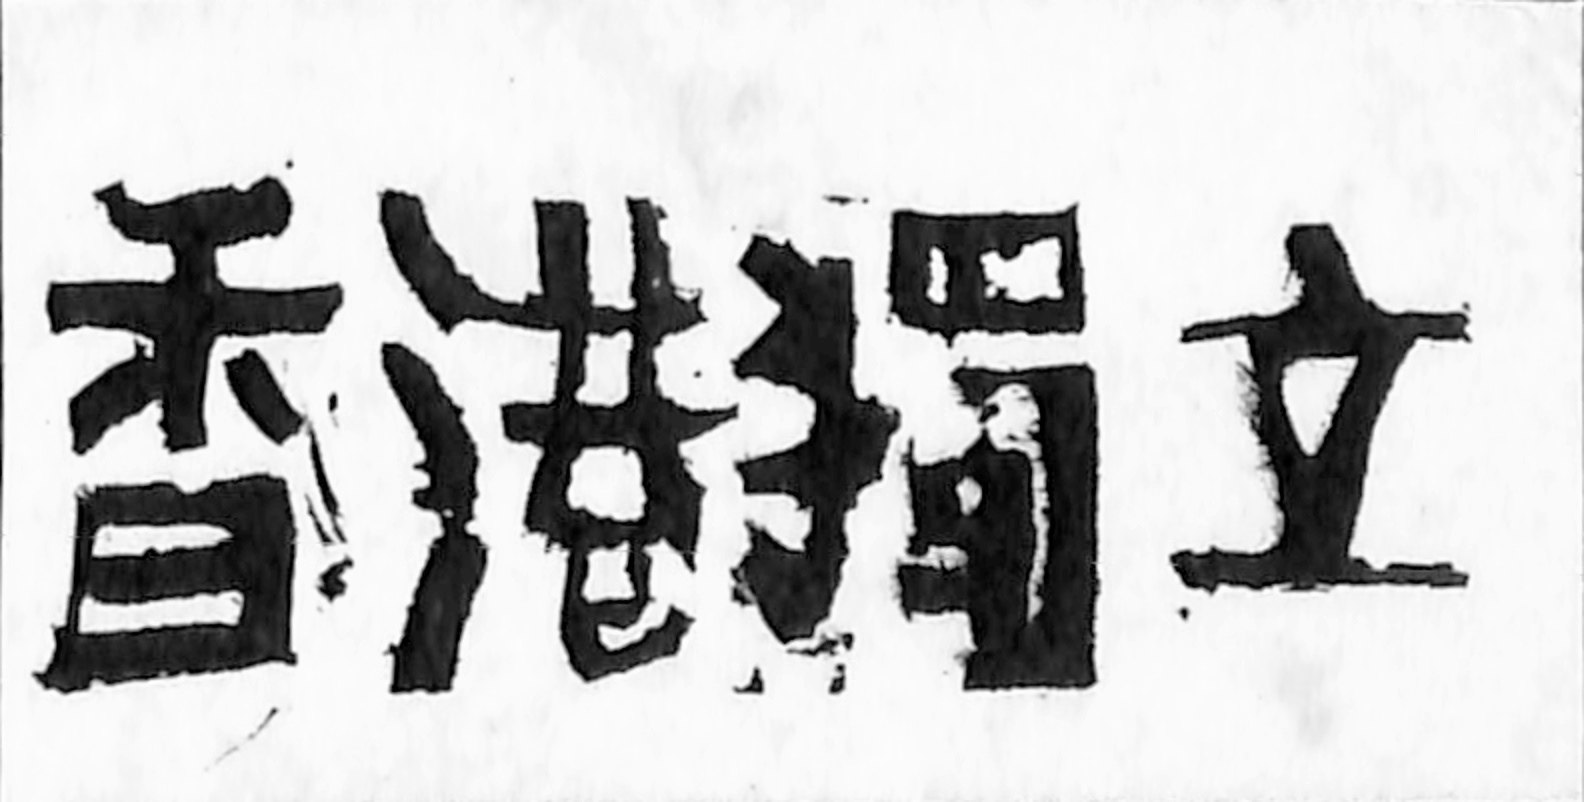 香港獨立